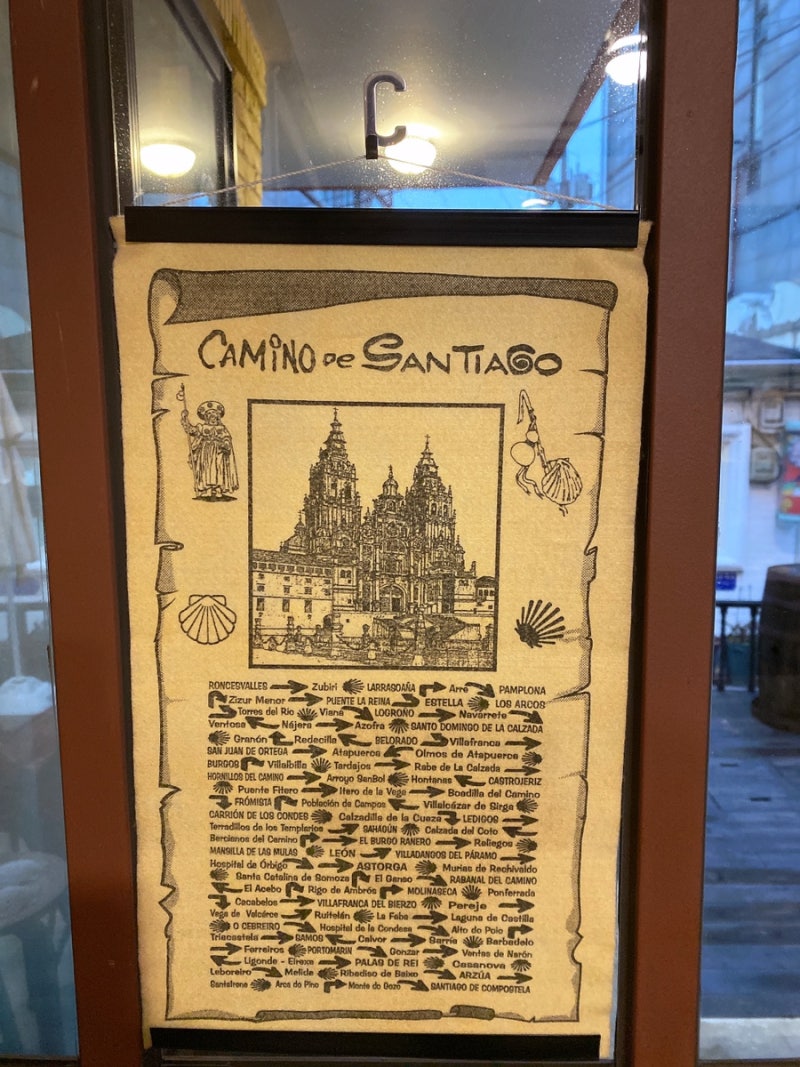 CAMINO DE SANTIAGO
RONCESVALLES Zubiri LARRASOAÑA Arre PAMPLONA
Zizur Menor PUENTE LA REINA ESTELLA LOS ARCOS
Torres del Rio Viana LOGROÑO Navarrete
Ventosa Nájera Azofra SANTO DOMINGO DE LA CALZADA
Grañón Redecilla BELORADO Villafranca
SAN JUAN DE ORTEGA Atapuerca Olmos de Atapuerca
BURGOS Villalbilla Tardajos Rabe de La Calzada
HORNILLOS DEL CAMINO Arroyo SanBol Hontanas CASTROJERIZ
Puente Fitero Itero de la Vega Boadilla del Camino
FRÓMISTA Población de Campos Villalcázar de Sirga
CARRIÓN DE LOS CONDES Calzadilla de la Cueza LEDIGOS
Terradillos de los Templarios SAHAGÚN Calzada del Coto
Bercianos del Camino EL BURGO RANERO Reliegos
MANSILLA DE LAS MULAS LEÓN VILLADANGOS DEL PÁRAMO
Hospital de Órbigo ASTORGA Murias de Rechivaldo
Santa Catalina de Somoza El Ganso RABANAL DEL CAMINO
El Acebo Riego de Ambrós MOLINASECA Ponferrada
Cacabelos VILLAFRANCA DEL BIERZO Pereje
Vega de Valcárce Ruitelán La Faba Laguna de Castilla
O CEBREIRO Hospital de la Condesa Alto do Poio
Triacastela SAMOS Calvor Sarria Barbadelo
Ferreiros PORTOMARIN Gonzar Ventas de Narón
Ligonde - Eirexe PALAS DE REI Casanova
Leboreiro Melide Ribadiso de Baixo ARZÚA
Santairene Arca do Pino Monte do Gozo SANTIAGO DE COMPOSTELA